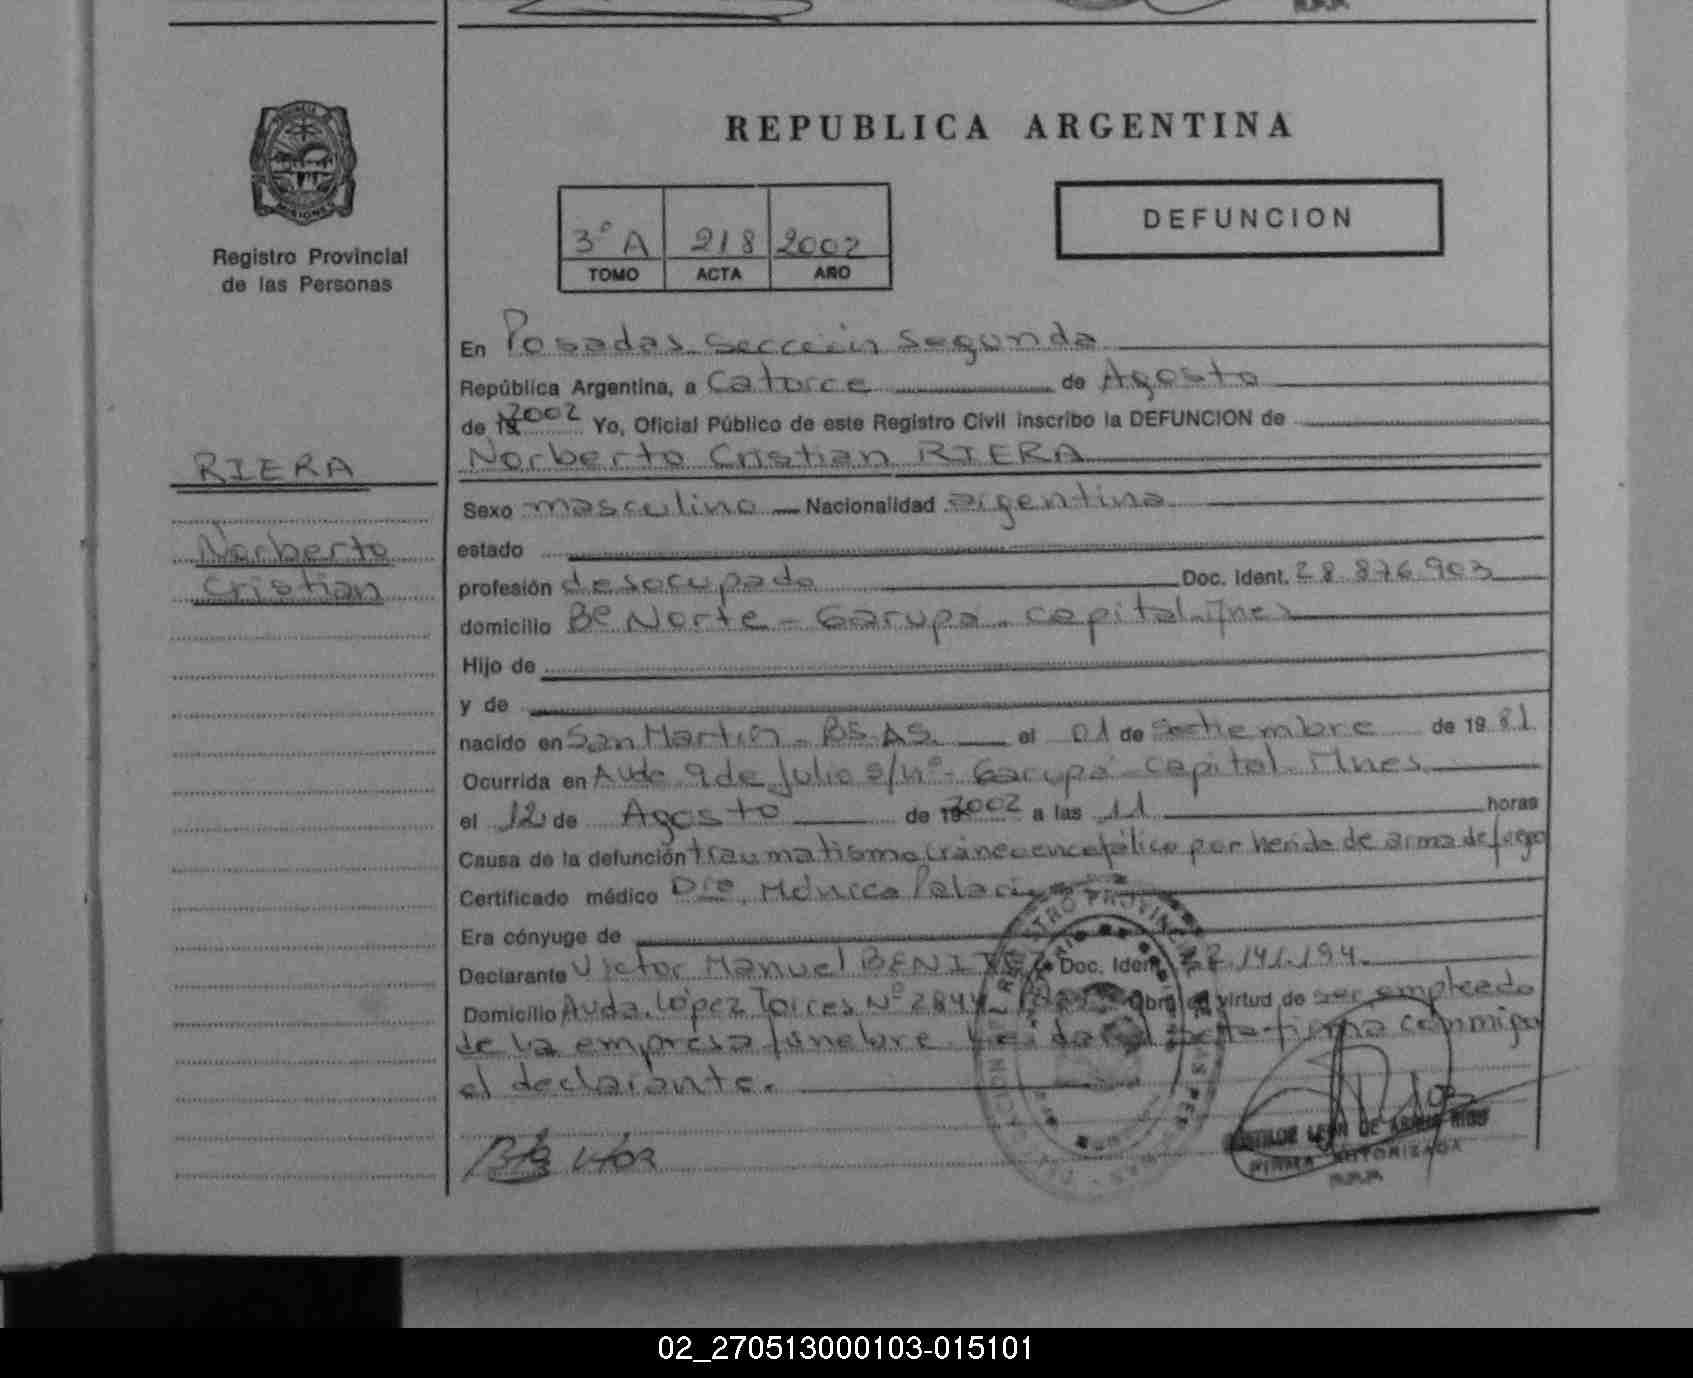 REPUBLICA ARGENTINA
Registro Provincial
de las Personas
3° A 218 2002
TOMO ACTA AÑO
DEFUNCION
RIERA
Norberto
Cristian
En Posadas Sección Segunda
República Argentina, a Catorce de Agosto
de 2002 Yo, Oficial Público de este Registro Civil inscribo la DEFUNCION de
Norberto Cristian RIERA
Sexo masculino Nacionalidad argentina
estado
profesión desocupado Doc. Ident. 28.876.903
domicilio Bº Norte - Garupá - capital - Mnes
Hijo de
y de
nacido en San Martín - BS.AS. el 01 de Septiembre de 1981
Ocurrida en Avda 9 de Julio s/nº - Garupá - capital - Mnes
el 12 de Agosto de 2002 a las 11 horas
Causa de la defunción traumatismo cráneoencefálico por herida de arma de fuego
Certificado médico Dra. Mónica Palacio
Era cónyuge de
Declarante Victor Manuel BENITEZ Doc. Ident. 141.194
Domicilio Avda. López Torres Nº 2844 Obra en virtud de ser empleado
de la empresa fúnebre. Leida el acta firma conmigo
el declarante.
LEON DE RIOS
FIRMA AUTORIZADA
R.P.P.
02_270513000103-015101